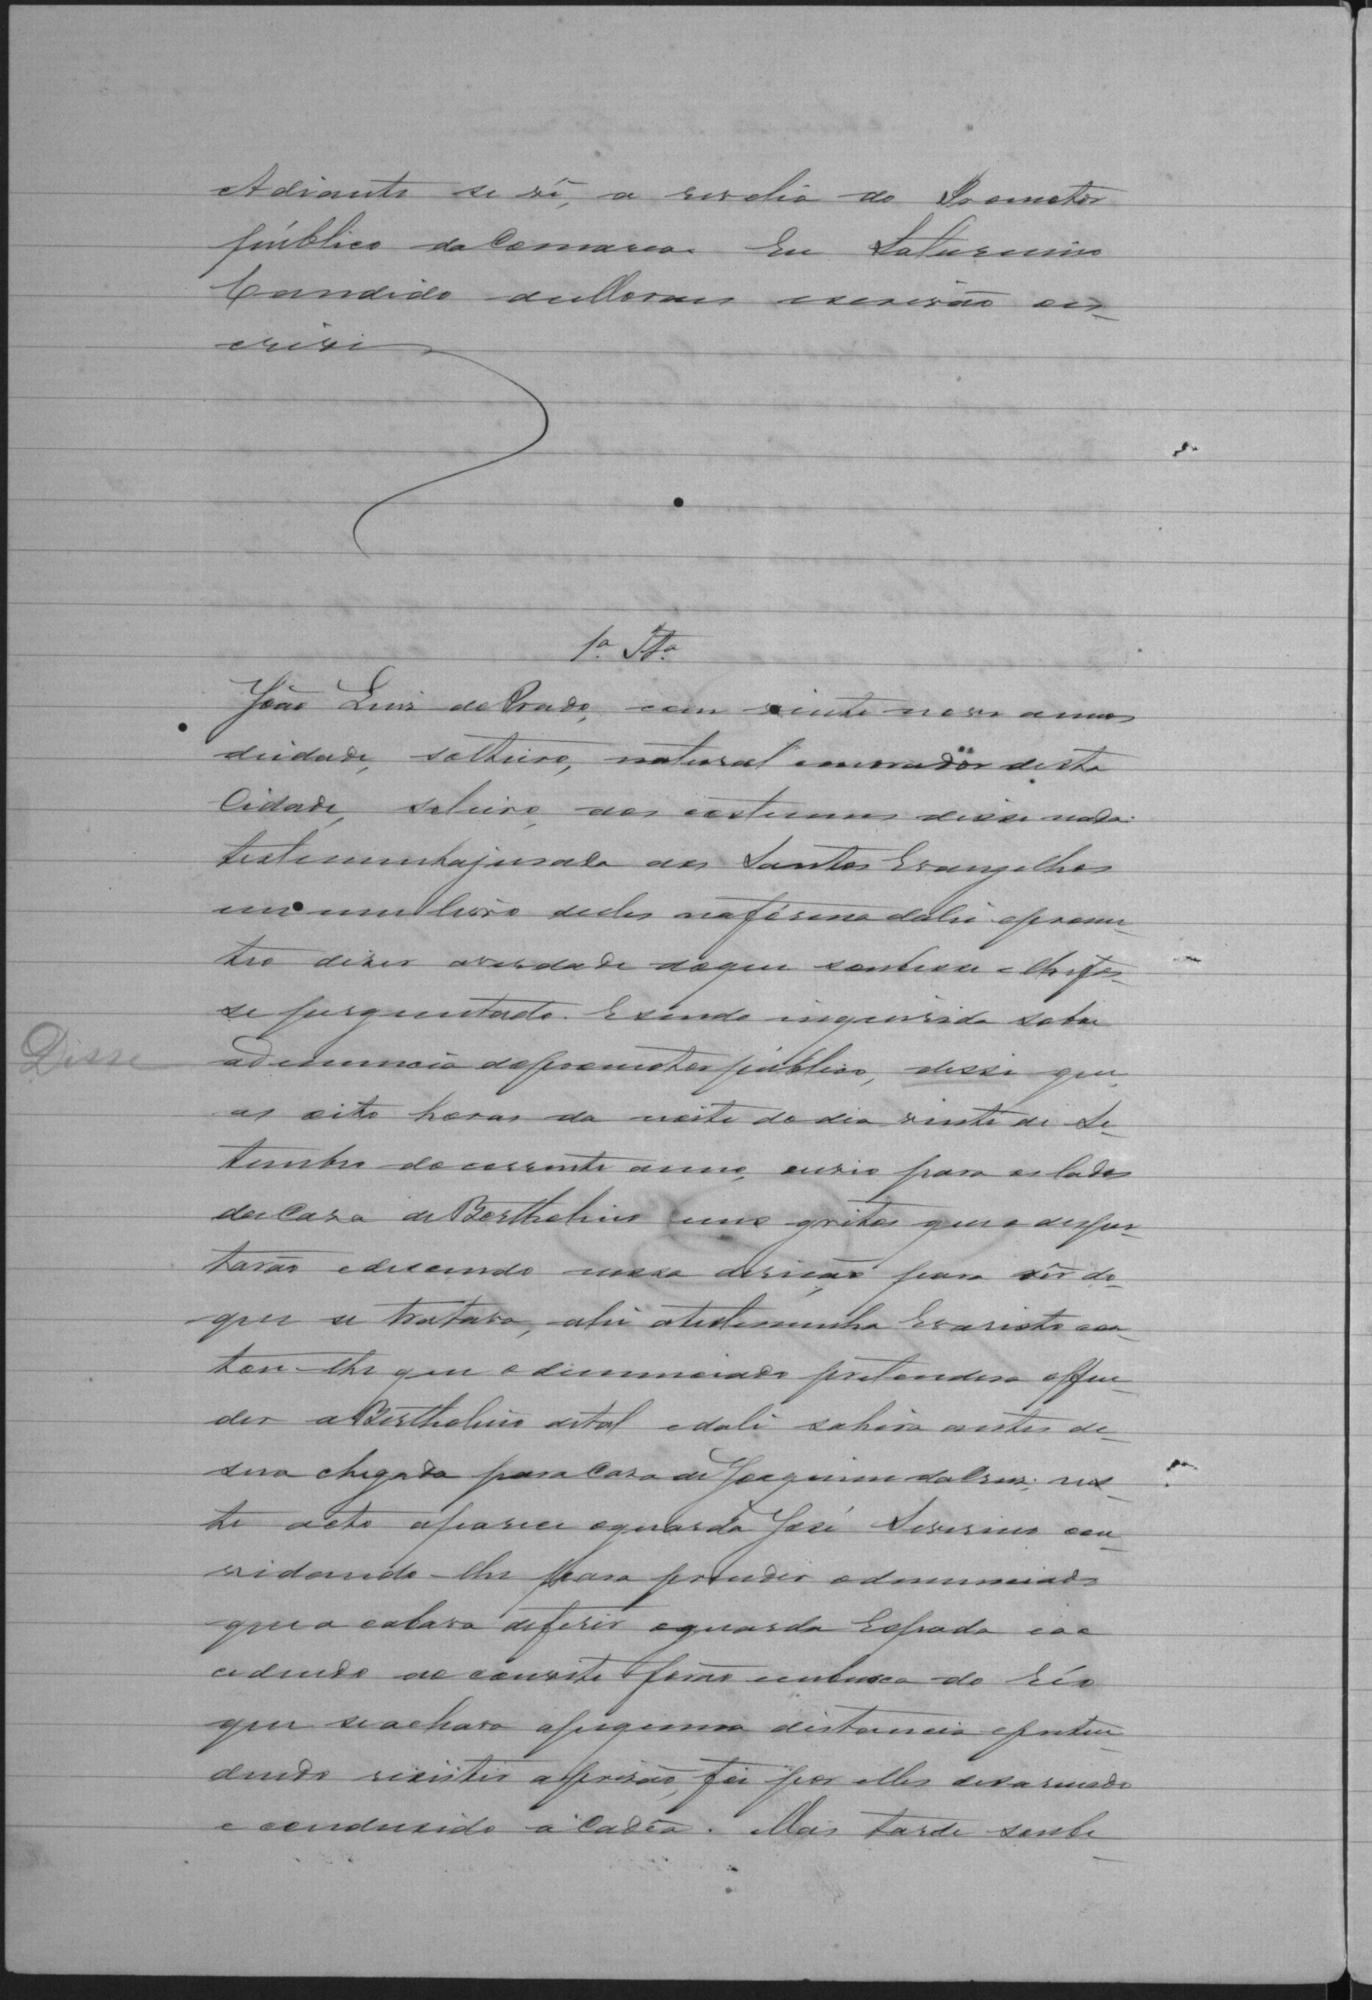 Adiante se vê, a revelia do Promotor
público da Comarca. Eu Saturnino
Candido de Moraes escrivão es-
crivi
1ª Ttª
João Luis do Prado, com vinte nove annos
de idade, solteiro, natural e morador desta
Cidade, solteiro, aos costumes disse nada.
testemunha jurada aos Santos Evangelhos
em um livro delles na fórma da lei e prome-
teo dizer a verdade do que soubesse e lhe fos-
se perguntado. E sendo inquirida sobre
Disse
a denuncia do promotor público, disse que,
as oito horas da noite do dia vinte de Se-
tembro do corrente anno, ouvio para os lados
da Casa de Bertholino uns gritos que o desper-
tarão e descendo nessa direição para vêr do
que se tratava, ahi a testemunha Evaristo con-
tou-lhe que o denunciado pretendera offen-
der a Bertholino de tal e dali sahira antes de
sua chegada para Casa de Joaquim da Cruz; nes-
te acto aparece o guarda José Severino con-
vidando-lhe para prender o denunciado
que acabava de ferir o guarda Espada e ac
cedendo ao convite forão em busca do réo
que se achava a pequena distancia e preten-
dendo resistir a prisão, foi por elles desarmado
e conduzido á Cadêa. Mais tarde soube